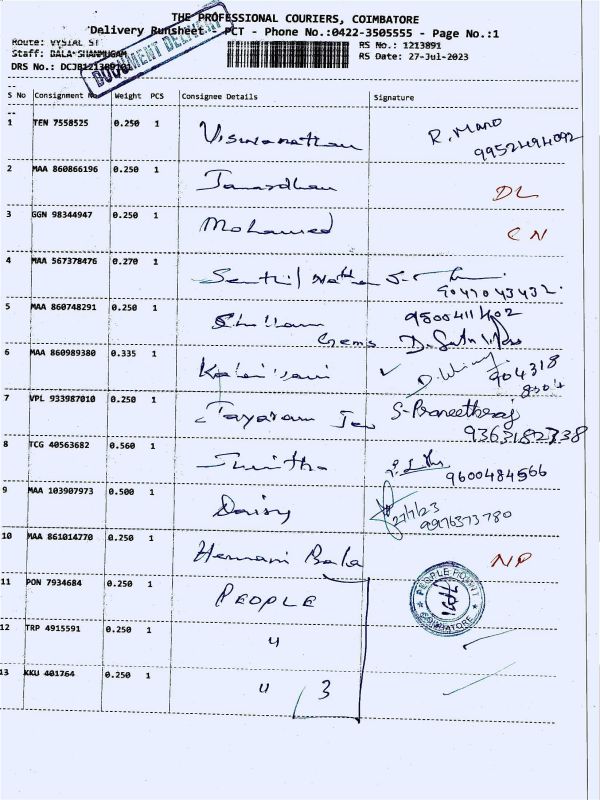 THE PROFESSIONAL COURIERS, COIMBATORE
Delivery Runsheet - PCT - Phone No.:0422-3505555 - Page No.:1
Route: VYSIAL ST
RS No.: 1213891
Staff: BALA SHANMUGAM
RS Date: 27-Jul-2023
DRS No.:
DOCUMENT DELIVERY
S No Consignment No Weight PCS Consignee Details Signature
1 TEN 7558525 0.250 1 Viswanathan R. Mano
9952494092
2 MAA 860866196 0.250 1 Janardhan DL
3 GGN 98344947 0.250 1 Mohamed CN
4 MAA 567378476 0.270 1 Senthil
9047043432
5 MAA 860748291 0.250 1 9500411402
Gems
6 MAA 860989380 0.335 1 904318
8304
7 VPL 933987010 0.250 1 Jayaram S-Praneethraj
9363182738
8 TCG 40563682 0.560 1 9600484566
9 MAA 103907973 0.500 1 Daisy 27/7/23
9976373780
10 MAA 861014770 0.250 1 Hemani Bala NP
11 PON 7934684 0.250 1 PEOPLE PEOPLE POINT
COIMBATORE
12 TRP 4915591 0.250 1 "
13 KKU 401764 0.250 1 " 3